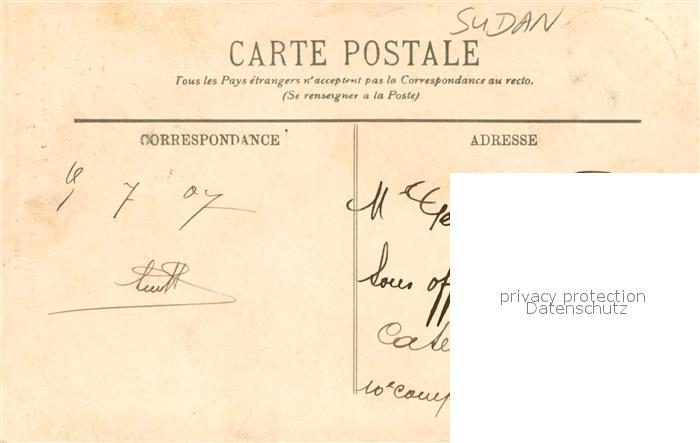 SUDAN
CARTE POSTALE
Tous les Pays étrangers n'acceptent pas la Correspondance au recto.
(Se renseigner a la Poste)
CORRESPONDANCE
ADRESSE
7 07
Sous off
privacy protection
Datenschutz